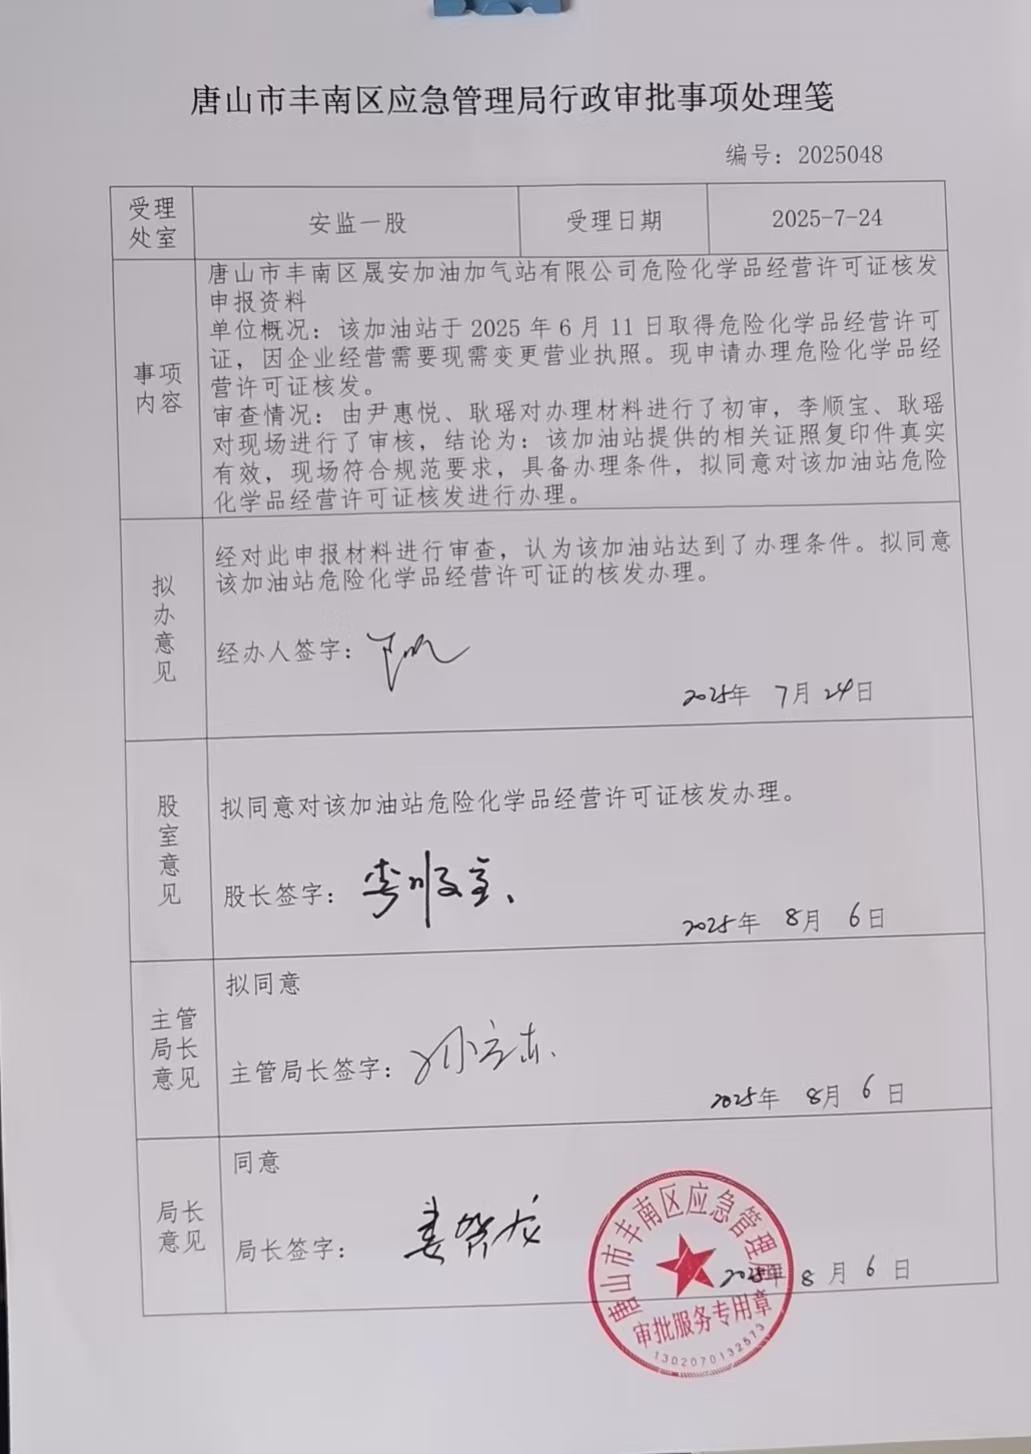 唐山市丰南区应急管理局行政审批事项处理笺
编号：2025048
受理
处室
安监一股
受理日期
2025-7-24
事项
内容
唐山市丰南区晟安加油加气站有限公司危险化学品经营许可证核发
申报资料
单位概况：该加油站于 2025 年 6 月 11 日取得危险化学品经营许可
证，因企业经营需要现需变更营业执照。现申请办理危险化学品经
营许可证核发。
审查情况：由尹惠悦、耿瑶对办理材料进行了初审，李顺宝、耿瑶
对现场进行了审核，结论为：该加油站提供的相关证照复印件真实
有效，现场符合规范要求，具备办理条件，拟同意对该加油站危险
化学品经营许可证核发进行办理。
拟
办
意
见
经对此申报材料进行审查，认为该加油站达到了办理条件。拟同意
该加油站危险化学品经营许可证的核发办理。
经办人签字：
2025年 7月 24日
股
室
意
见
拟同意对该加油站危险化学品经营许可证核发办理。
股长签字：李顺宝
2025年 8月 6日
主管
局长
意见
拟同意
主管局长签字：
2025年 8月 6日
局长
意见
同意
局长签字：姜贺龙
2025年 8月 6日
唐山市丰南区应急管理局
审批服务专用章
1302070132573